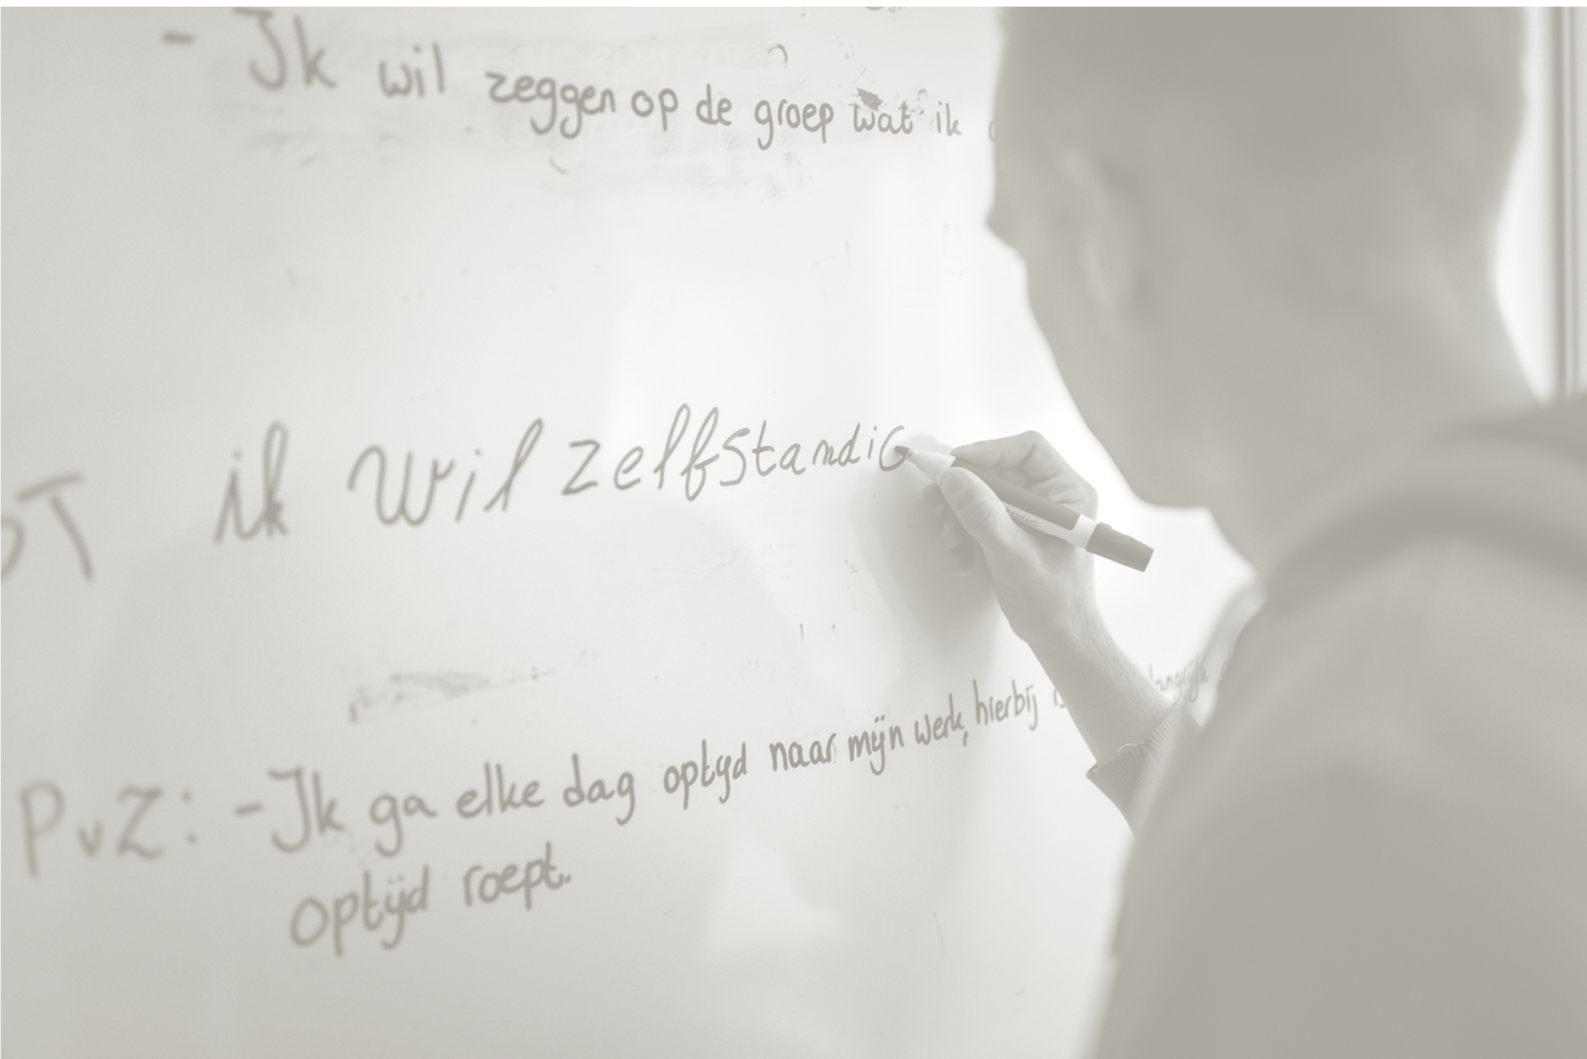 - Ik wil zeggen op de groep wat ik
ik wil zelfstandig
PvZ: - Ik ga elke dag optijd naar mijn werk, hierbij
optijd roept.